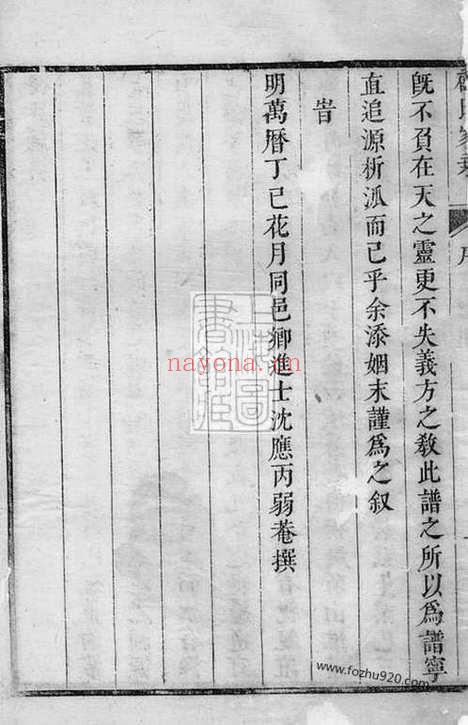 既不負在天之靈更不失義方之教此譜之所以為譜寧
直追源析派而已乎余添姻末謹為之叙
旹
明萬曆丁巳花月同邑鄉進士沈應丙弱菴撰
nayona.cn
www.fozhu920.com